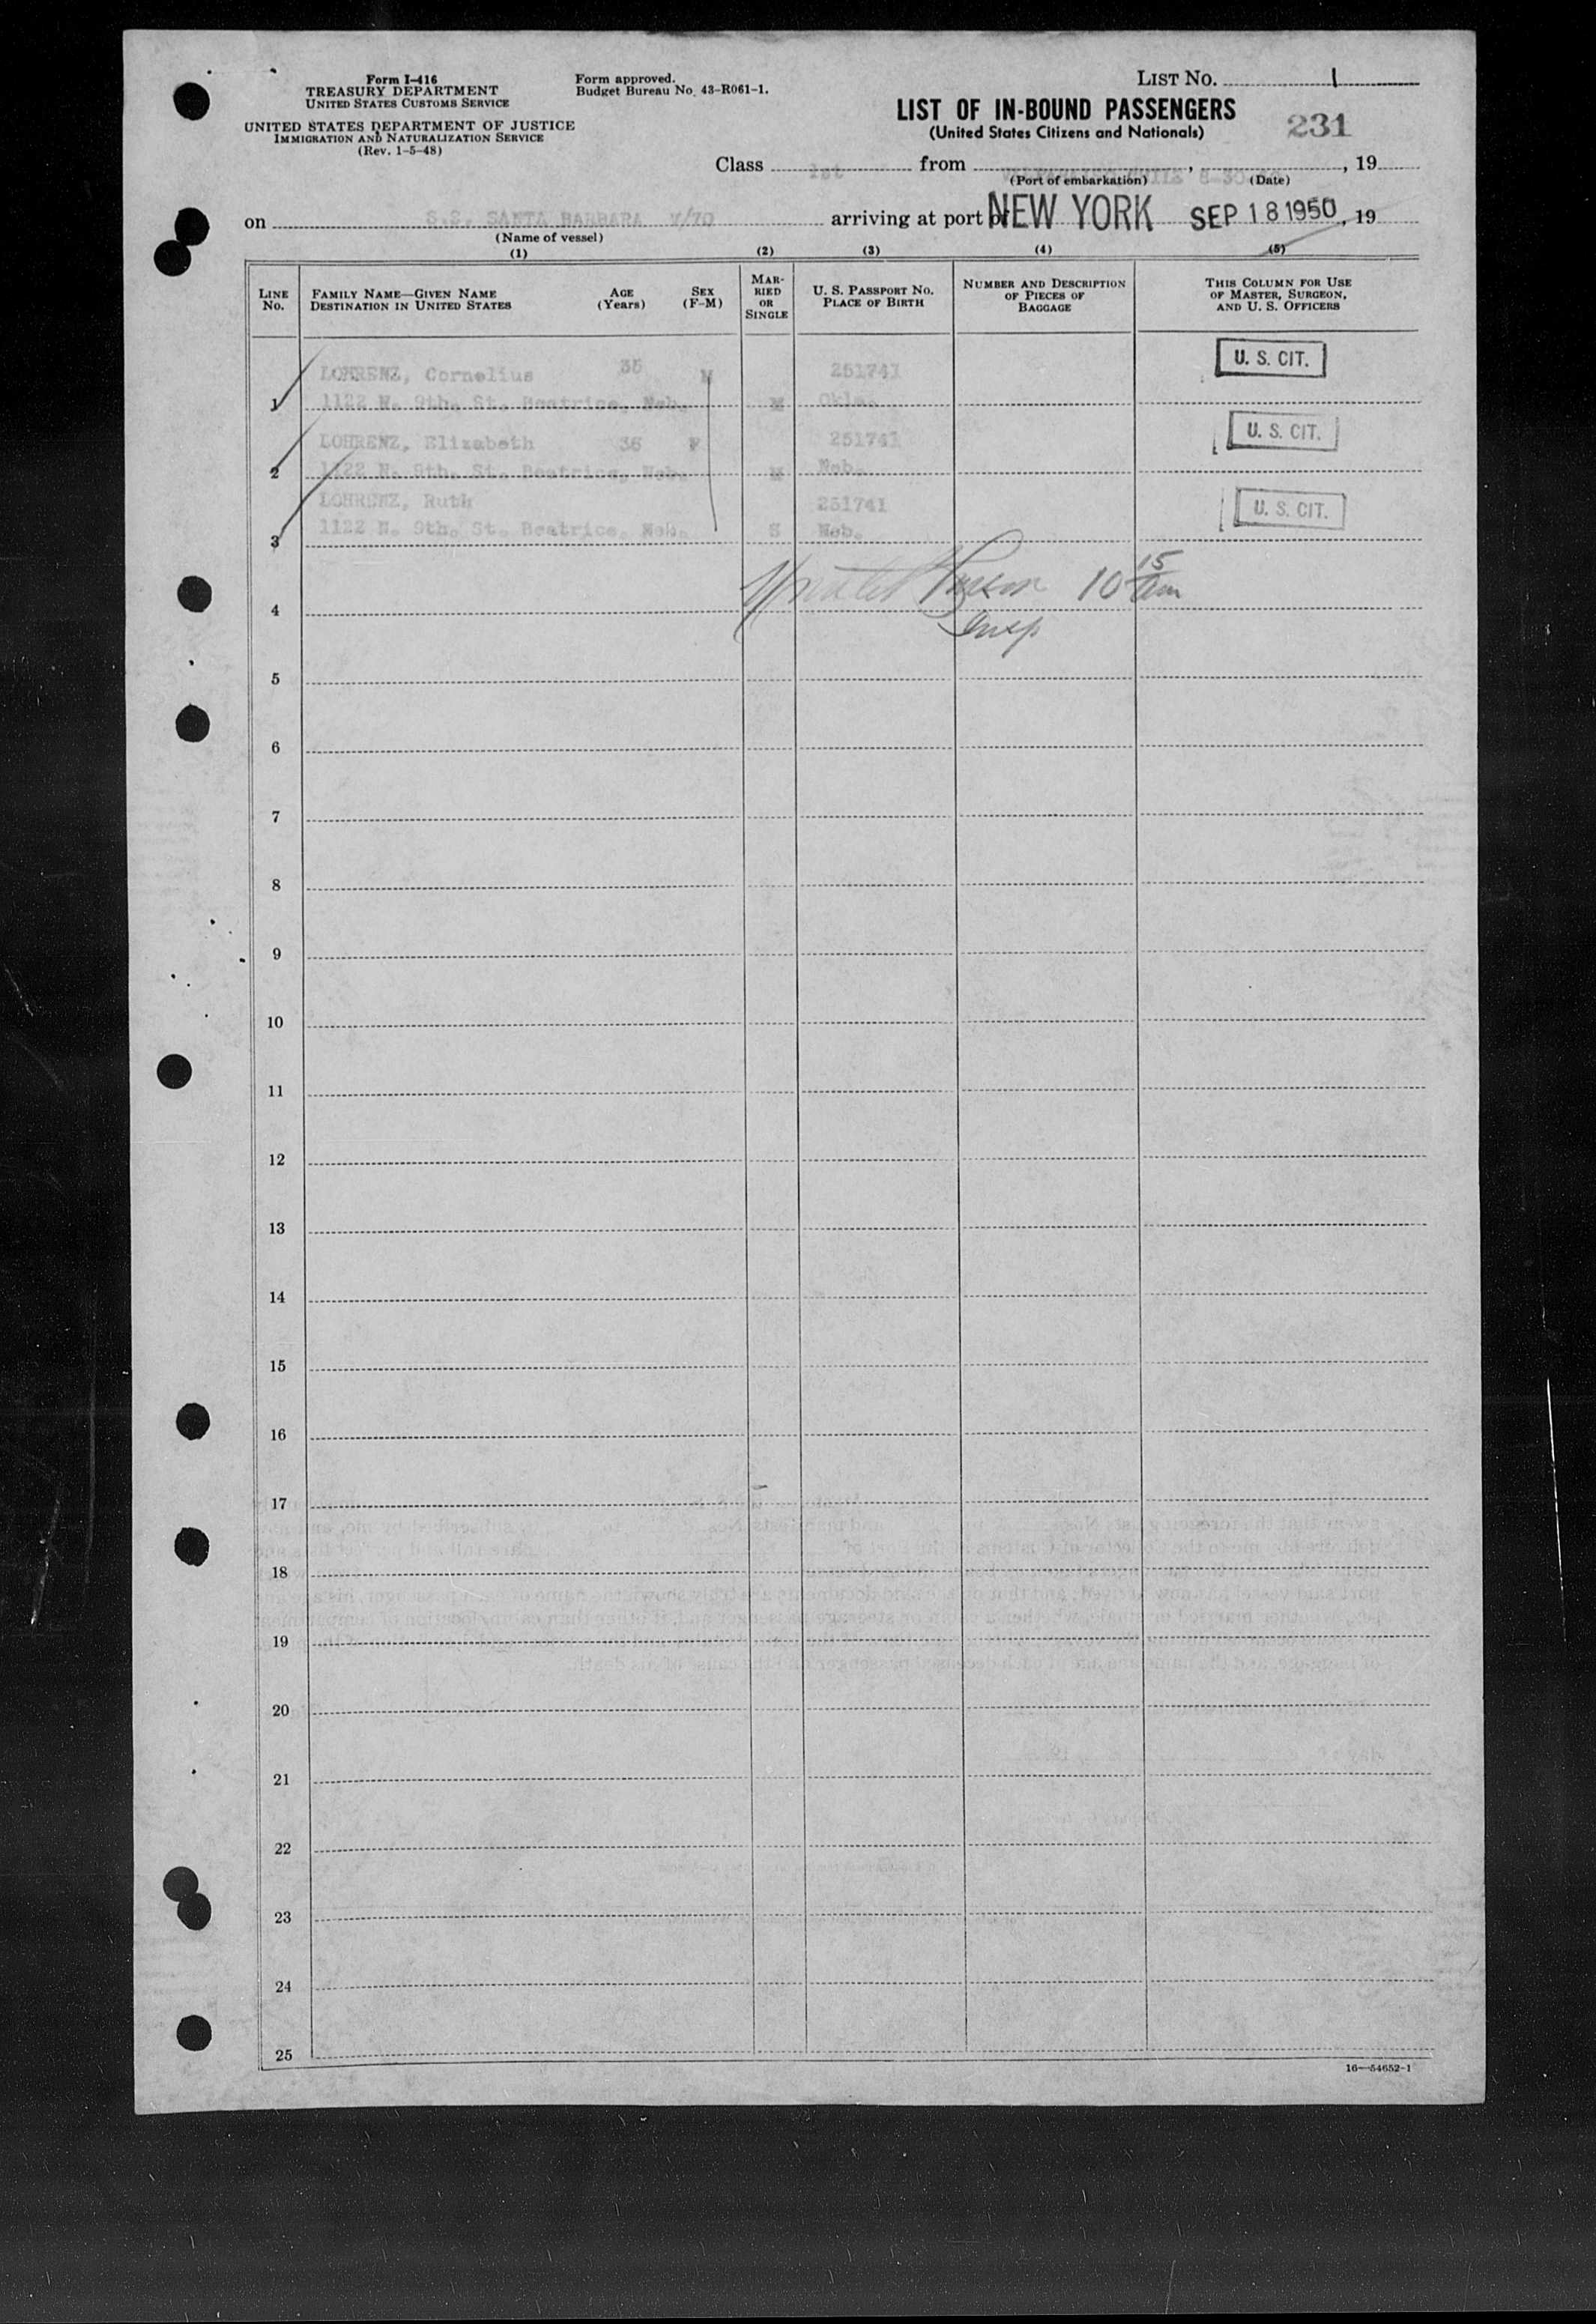 Form I-416
TREASURY DEPARTMENT
UNITED STATES CUSTOMS SERVICE
UNITED STATES DEPARTMENT OF JUSTICE
IMMIGRATION AND NATURALIZATION SERVICE
(Rev. 1-5-48)
Form approved.
Budget Bureau No. 43-R061-1.
LIST NO. 1
LIST OF IN-BOUND PASSENGERS
(United States Citizens and Nationals)
231
Class 1st from , , 19
(Port of embarkation) (Date)
on S.S. SANTA BARBARA V/70 arriving at port of NEW YORK SEP 18 1950, 19
(Name of vessel)
(1) (2) (3) (4) (5)
LINE NO.
FAMILY NAME—GIVEN NAME
DESTINATION IN UNITED STATES
AGE (Years)
SEX (F-M)
MARRIED OR SINGLE
U. S. PASSPORT NO.
PLACE OF BIRTH
NUMBER AND DESCRIPTION OF PIECES OF BAGGAGE
THIS COLUMN FOR USE OF MASTER, SURGEON, AND U. S. OFFICERS
LOHRENZ, Cornelius 35 M 251741 U. S. CIT.
1 1122 N. 9th. St. Beatrice, Neb. M Okla.
LOHRENZ, Elizabeth 36 F 251741 U. S. CIT.
2 1122 N. 9th. St. Beatrice, Neb. M Neb.
LOHRENZ, Ruth 251741 U. S. CIT.
3 1122 N. 9th. St. Beatrice, Neb. S Neb.
10 15 am
4
Insp
5
6
7
8
9
10
11
12
13
14
15
16
17
18
19
20
21
22
23
24
25
16—54652-1